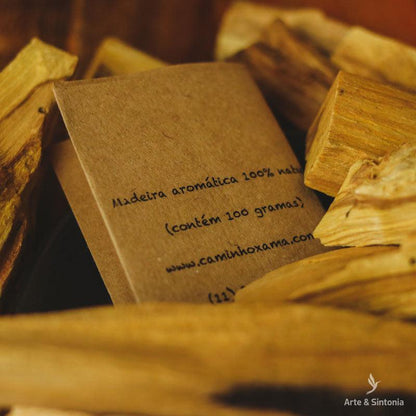 Madeira aromática 100% nat
(contém 100 gramas)
www.caminhoxama.com
(11)
Arte & Sintonia